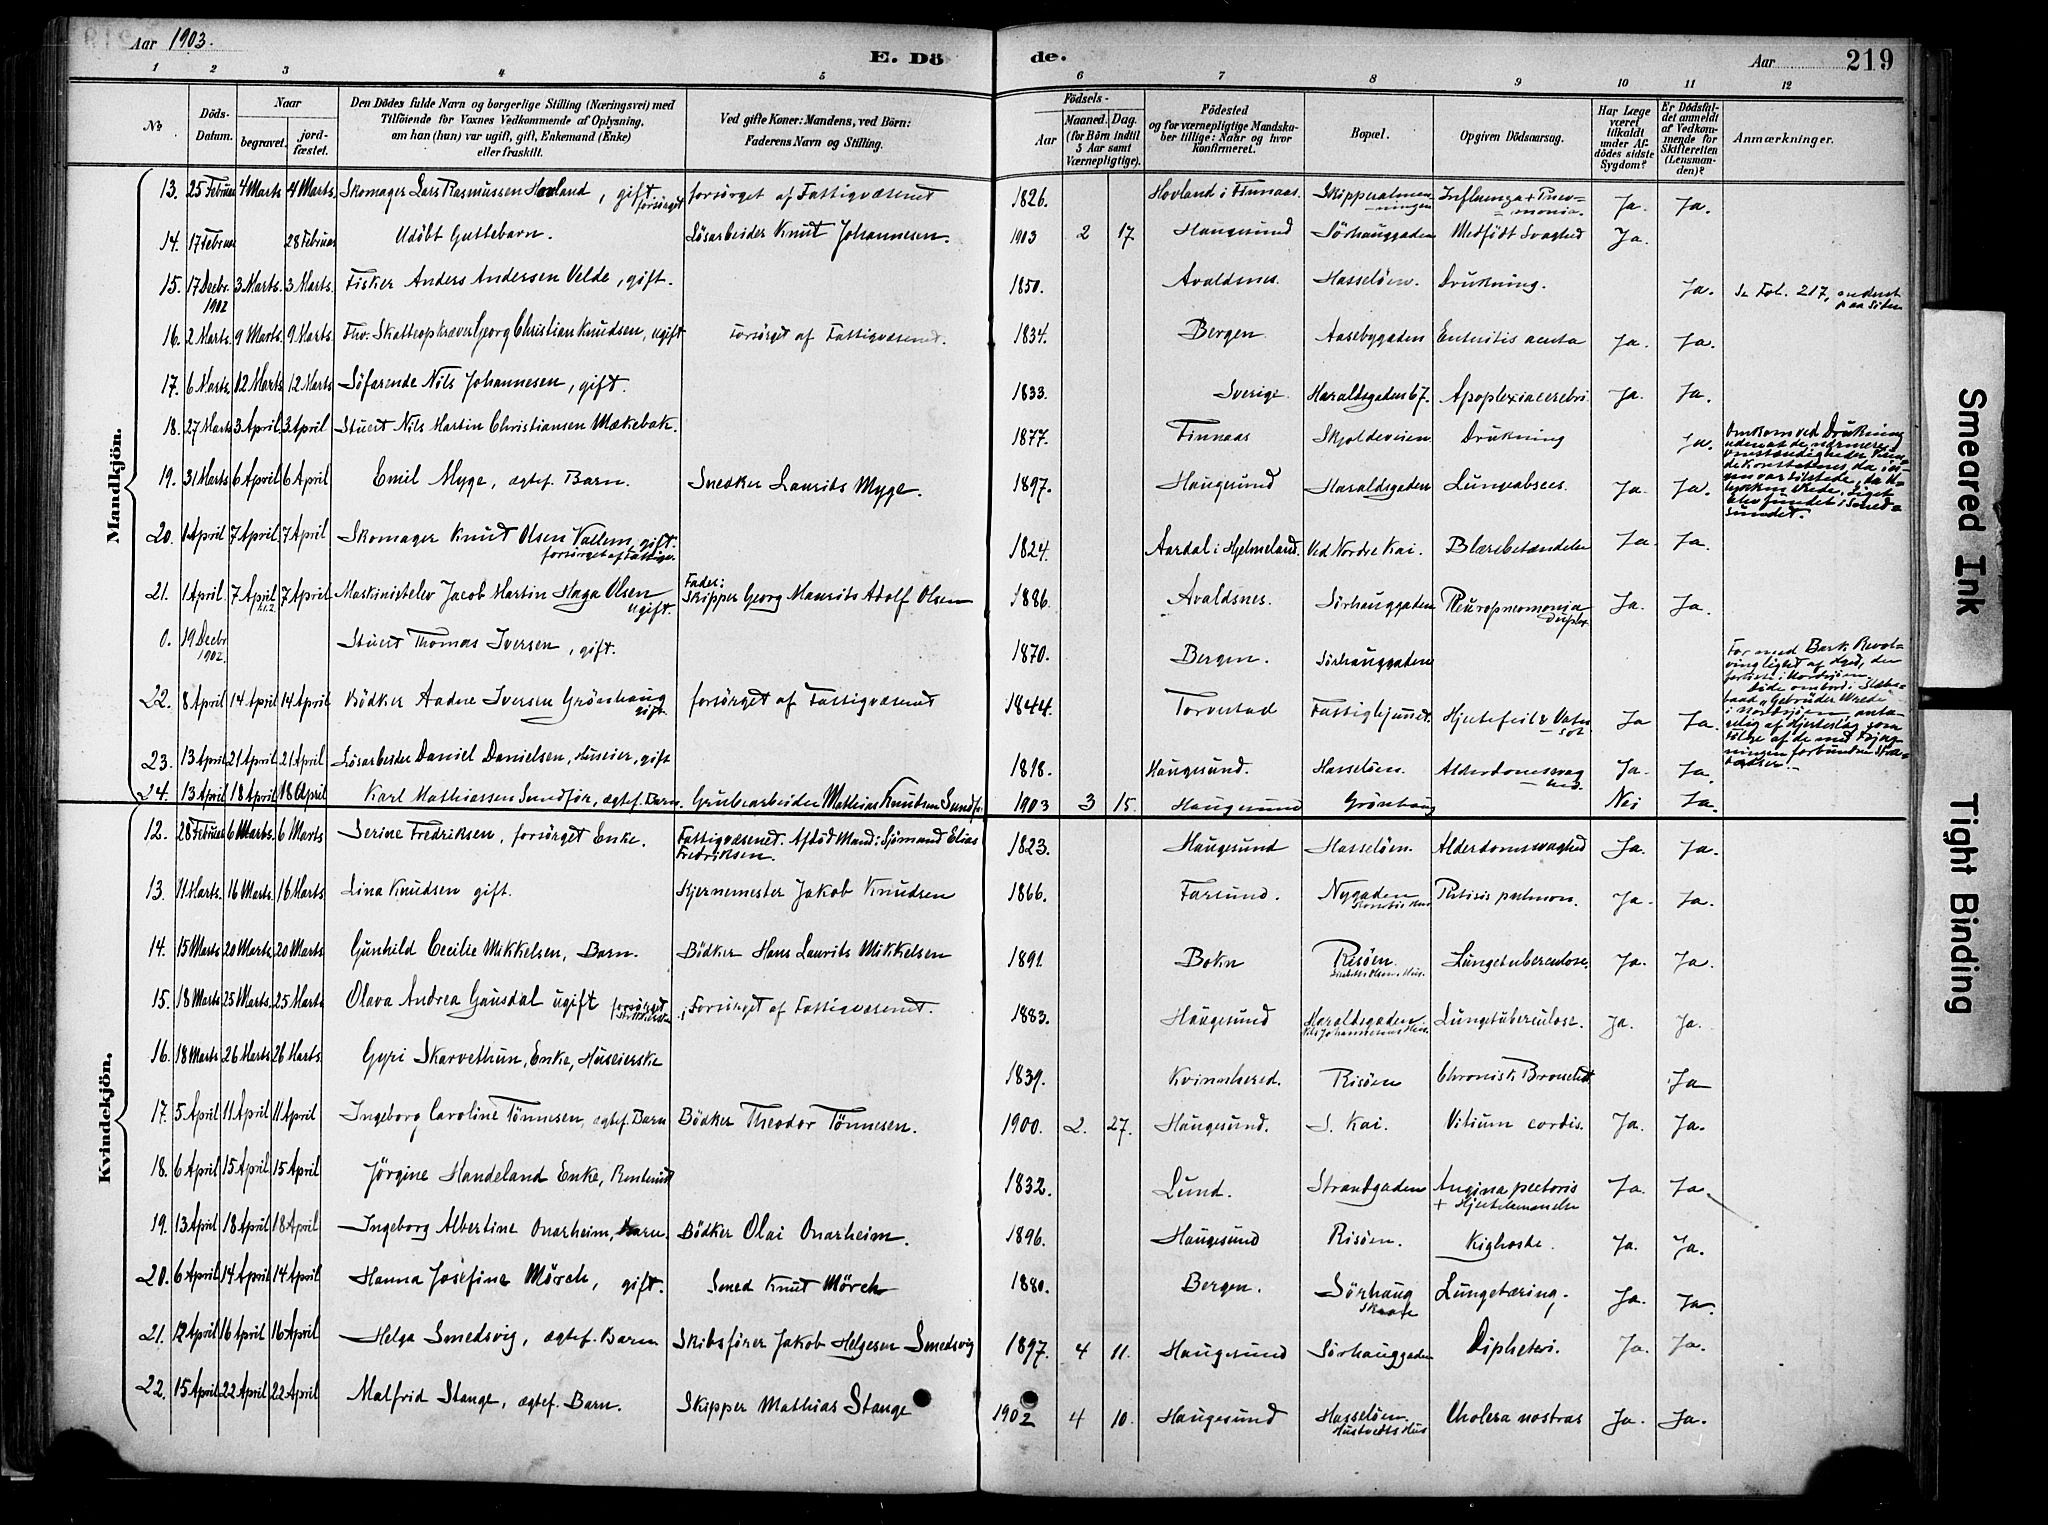 Aar 1903.
E. Döde.
Aar
219
1 2 3 4 5 6 7 8 9 10 11 12
No.
Döds-Datum.
Naar begravet. jordfæstet.
Den Dødes fulde Navn og borgerlige Stilling (Næringsvei) med Tilføiende for Voxnes Vedkommende af Oplysning, om han (hun) var ugift, gift, Enkemand (Enke) eller fraskilt.
Ved gifte Koner: Mandens, ved Børn: Faderens Navn og Stilling.
Fødsels-
Aar
Maaned. Dag. (for Børn indtil 5 Aar samt Værnepligtige).
Fødested og for værnepligtige Mandskaber tillige: Naar og hvor konfirmeret.
Bopæl.
Opgiven Dødsaarsag.
Har Læge været tilkaldt under Afdødes sidste Sygdom?
Er Dødsfaldet anmeldt af Vedkommende for Skifteretten (Lensmanden)?
Anmærkninger.
Mandkjön.
13. 25 Februar 4 Marts 4 Marts. Skomager Lars Rasmussen Hovland, gift forsørget forsørget af Fattigvæsenet 1826. Hovland i Finnaas. Influenza + Pneumonia. Ja. Ja.
14. 17 Februar 28 Februar Udöbt Guttebarn. Lösarbeider Knut Johannesen. 1903 2 17 Haugesund Sörhauggaden Medfödt Svaghed Ja.
15. 17 Decbr. 1902 3 Marts. 3 Marts. Fisker Anders Andersen Velde, gift. 1850. Avaldsnes. Hasselöen. Drukning. Ja. Se Fol. 217, nederst paa Siden
16. 2 Marts. 9 Marts. 9 Marts. Fhv. Skatteopkræver Georg Christian Knudsen, ugift forsörget af Fattigvæsenet. 1834. Bergen. Aasebygaden Enteritis acuta Ja. Ja.
17. 6 Marts. 12 Marts 12 Marts Söfarende Nils Johannesen, gift. 1833. Sverige. Haraldsgaden 67. Apoplexia cerebri Ja. Ja.
18. 27 Marts 3 April. 3 April Stuert Nils Martin Christiansen Mækebak. 1877. Finnaas Skjoldeveien Drukning Ja. Omkom ved Drukning uden at de nærmere Omstændigheder kunde konstateres, da ingen var tilstede, da Ulykken skede. Liget blev fundet i Smedsundet.
19. 31 Marts 6 April 6 April Emil Myge, ægtef. Barn. Snedker Laurits Myge. 1897. Haugesund Haraldsgaden Lungeabsces. Ja. Ja.
20. 1 April 7 April 7 April Skomager Knut Olsen Vallem, gift. forsörget af Fattigv. 1824. Aardal i Hjelmeland. Ved Nordre Kai. Blærebetændelse Ja. Ja.
21. 1 April. 7 April 7 April Maskinistelev Jacob Martin Haga Olsen ugift. Fader: Skipper Georg Maurits Adolf Olsen 1886. Avaldsnes. Sörhauggaden Pleuropneomonia duplex. Ja. Ja.
0. 19 Decbr 1902. Stuert Thomas Iversen, gift. 1870. Bergen. Sörhauggaden
22. 8 April 14 April 14 April Bödker Aadne Iversen Grönhaug gift. forsörget af Fattigvæsenet 1844. Torvestad Fattighjemmet. Hjertefeil & Vatersot. Ja Ja.
23. 13 April 21 April 21 April Lösarbeider Daniel Danielsen, Huseier, gift 1818. Haugesund. Hasselöen. Alderdomssvaghed. Ja. Ja.
24. 13 April 18 April 18 April Karl Mathiassen Sundför, ægtef. Barn. Grubearbeider Mathias Knutsen Sundför 1903 3 15. Haugesund Grönhaug Nei Ja.
Kvindekjön.
12. 28 Februar 6 Marts. 6 Marts Serine Fredriksen, forsörget Enke. Fattigvæsenet. Afdöd Mand: Sjömand Elias Fredriksen. 1823. Haugesund Hasselöen. Alderdomssvaghed Ja. Ja.
13. 11 Marts. 16 Marts. 16 Marts. Lina Knudsen gift. Kjernemester Jakob Knudsen 1866. Farsund. Nygaden Phtisis pulmon. Ja. Ja.
14. 15 Marts 20 Marts 20 Marts. Gunhild Cecilie Mikkelsen, Barn. Bödker Hans Laurits Mikkelsen 1891. Bokn Risöen. Lungetuberculose. Ja. Ja.
15. 18 Marts 25 Marts. 25 Marts. Olava Andrea Gausdal ugift forsörget Forsörget af Fattigvæsenet. 1883. Haugesund Haraldsgaden Nils Johannesens Hus. Lungetuberculose. Ja. Ja.
16. 18 Marts 26 Marts 26 Marts. Gyri Skarvethun, Enke, Huseierske 1839. Kvinnherred. Risöen Chronisk Bronchit Ja
17. 5 April 11 April 11 April Ingeborg Caroline Tönnesen, ægtef. Barn Bödker Theodor Tönnesen. 1900. 2. 27. Haugesund. S. Kai. Vitium cordis. Ja. Ja.
18. 6 April 15 April 15 April Jörgine Handeland Enke, 1832. Lund. Strandgaden Angina pectoris + Hjertelammelse Ja. Ja.
19. 13 April 18 April 18 April Ingeborg Albertine Onarheim, Barn. Bödker Olai Onarheim. 1896. Haugesund Risöen. Kighoste. Ja. Ja.
20. 6 April 14 April 14 April Hanna Josefine Mörch, gift. Smed Knut Mörch 1880. Bergen. Sörhaug Lungetæring. Ja. Ja.
21. 12 April 16 April 16 April Helga Smedsvig, ægtef. Barn Skibsförer Jakob Helgesen Smedsvig 1897. 4 11. Haugesund Sörhauggaden Dipheteri. Ja. Ja.
22. 15 April 22 April 22 April Malfrid Stange, ægtef. Barn. Skipper Mathias Stange 1902 4 10. Haugesund Hasselöen. Hustvedts Hus Cholera nostras Ja. Ja.
Smeared Ink
Tight Binding